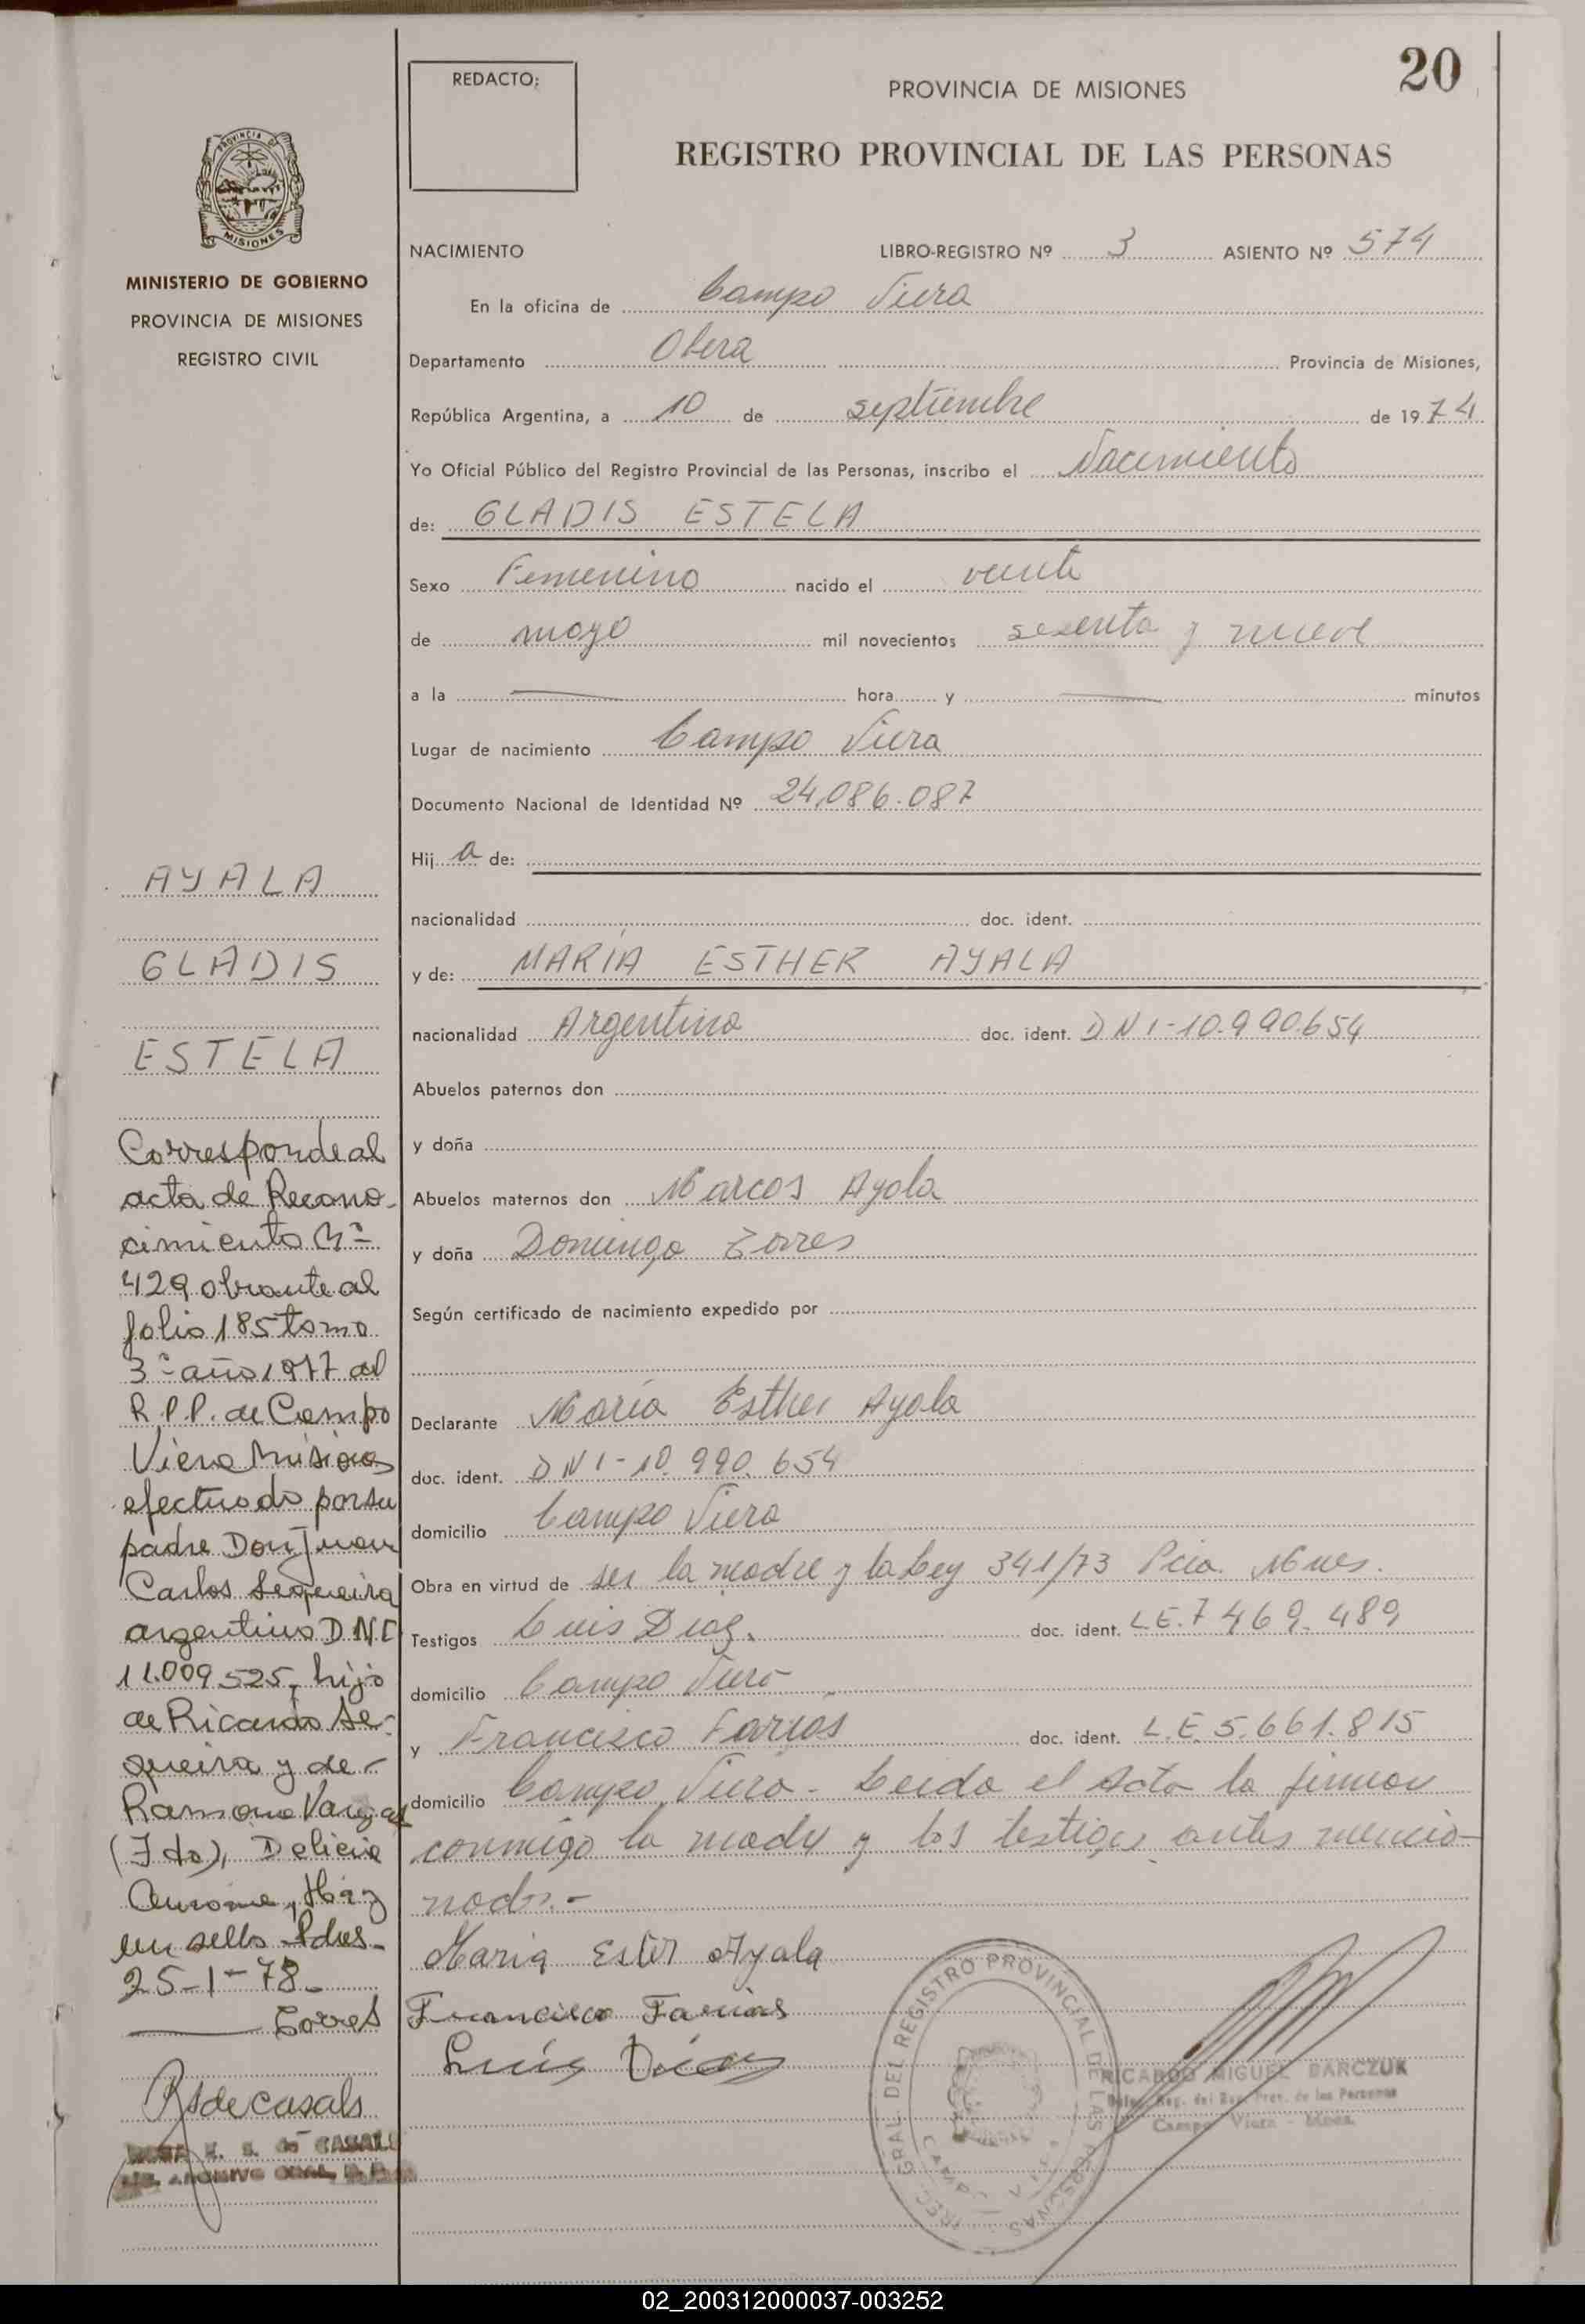 20
REDACTO:
PROVINCIA DE MISIONES
REGISTRO PROVINCIAL DE LAS PERSONAS
PROVINCIA DE
MISIONES
MINISTERIO DE GOBIERNO
PROVINCIA DE MISIONES
REGISTRO CIVIL
NACIMIENTO LIBRO-REGISTRO Nº 3 ASIENTO Nº 574
En la oficina de Campo Viera
Departamento Obera Provincia de Misiones,
República Argentina, a 10 de septiembre de 1974
Yo Oficial Público del Registro Provincial de las Personas, inscribo el Nacimiento
de: GLADIS ESTELA
Sexo Femenino nacido el veinte
de mayo mil novecientos sesenta y nueve
a la — hora y — minutos
Lugar de nacimiento Campo Viera
Documento Nacional de Identidad Nº 24.086.087
Hij a de:
nacionalidad doc. ident.
y de: MARIA ESTHER AYALA
nacionalidad Argentina doc. ident. DNI-10.990.654
Abuelos paternos don
y doña
Abuelos maternos don Marcos Ayala
y doña Dominga Torres
Según certificado de nacimiento expedido por
Declarante María Esther Ayala
doc. ident. DNI-10.990.654
domicilio Campo Viera
Obra en virtud de ser la madre y la Ley 341/73 Pcia. Mnes.
Testigos Luis Diaz. doc. ident. L.E. 7469.489
domicilio Campo Viera
y Francisco Farias doc. ident. L.E. 5.661.815
domicilio Campo Viera - Leida el Acta la firman
conmigo la madre y los testigos antes mencio-
nados.-
Maria Ester Ayala
Francisco Farias
Luis Diaz
GRAL. DEL REGISTRO PROVINCIAL DE LAS PERSONAS
RICARDO MIGUEL BARCZUK
Reg. del Reg. Prov. de las Personas
Campo Viera - Mnes.
AYALA
GLADIS
ESTELA
Corresponde al
acta de Recono-
cimiento Nº
429 obrante al
folio 185 tomo
3º año 1977 del
R.P.P. de Campo
Viera Misiones
efectuado por su
padre Don Juan
Carlos Sequeira
argentino D.N.I
11.009.525, hijo
de Ricardo Se-
queira y de
Ramona Vargas
(Fdo), Delicia
Hay
un sello Pdas.
25-1-78.
Torres
RSdeCasals
ROSA E. S. de CASALS
ARCHIVO GRAL.
02_200312000037-003252